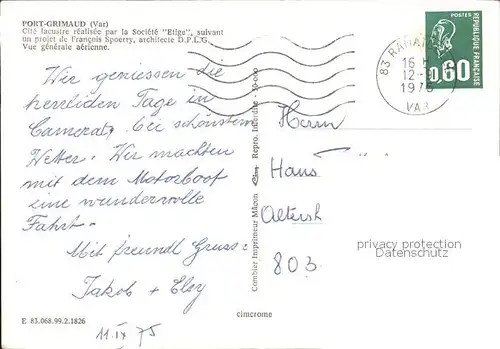 PORT-GRIMAUD (Var)
Cité lacustre réalisée par la Société "Etige", suivant
un projet de François Spoerry, architecte D.P.L.G.
Vue générale aérienne.
Wir geniessen die
herrlichen Tage in
bei schönstem
Wetter. Wir machten
mit dem Motorboot
eine wundervolle
Fahrt.
Mit freundl Gruss:
Jakob + Elsy
11 IX 75
E 83.068.99.2.1826
Combier Imprimeur Mâcon
Repro. Interdite
cimcrome
POSTES
REPUBLIQUE FRANÇAISE
0,60
83
16 H
12-9
1975
VAR
Herrn
Hans
803
privacy protection
Datenschutz